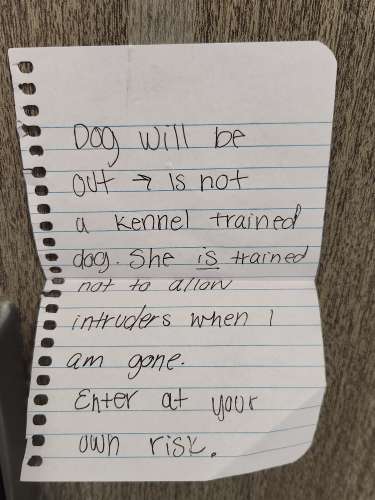 Dog will be
out → is not
a kennel trained
dog. She is trained
not to allow
intruders when I
am gone.
Enter at your
own risk.